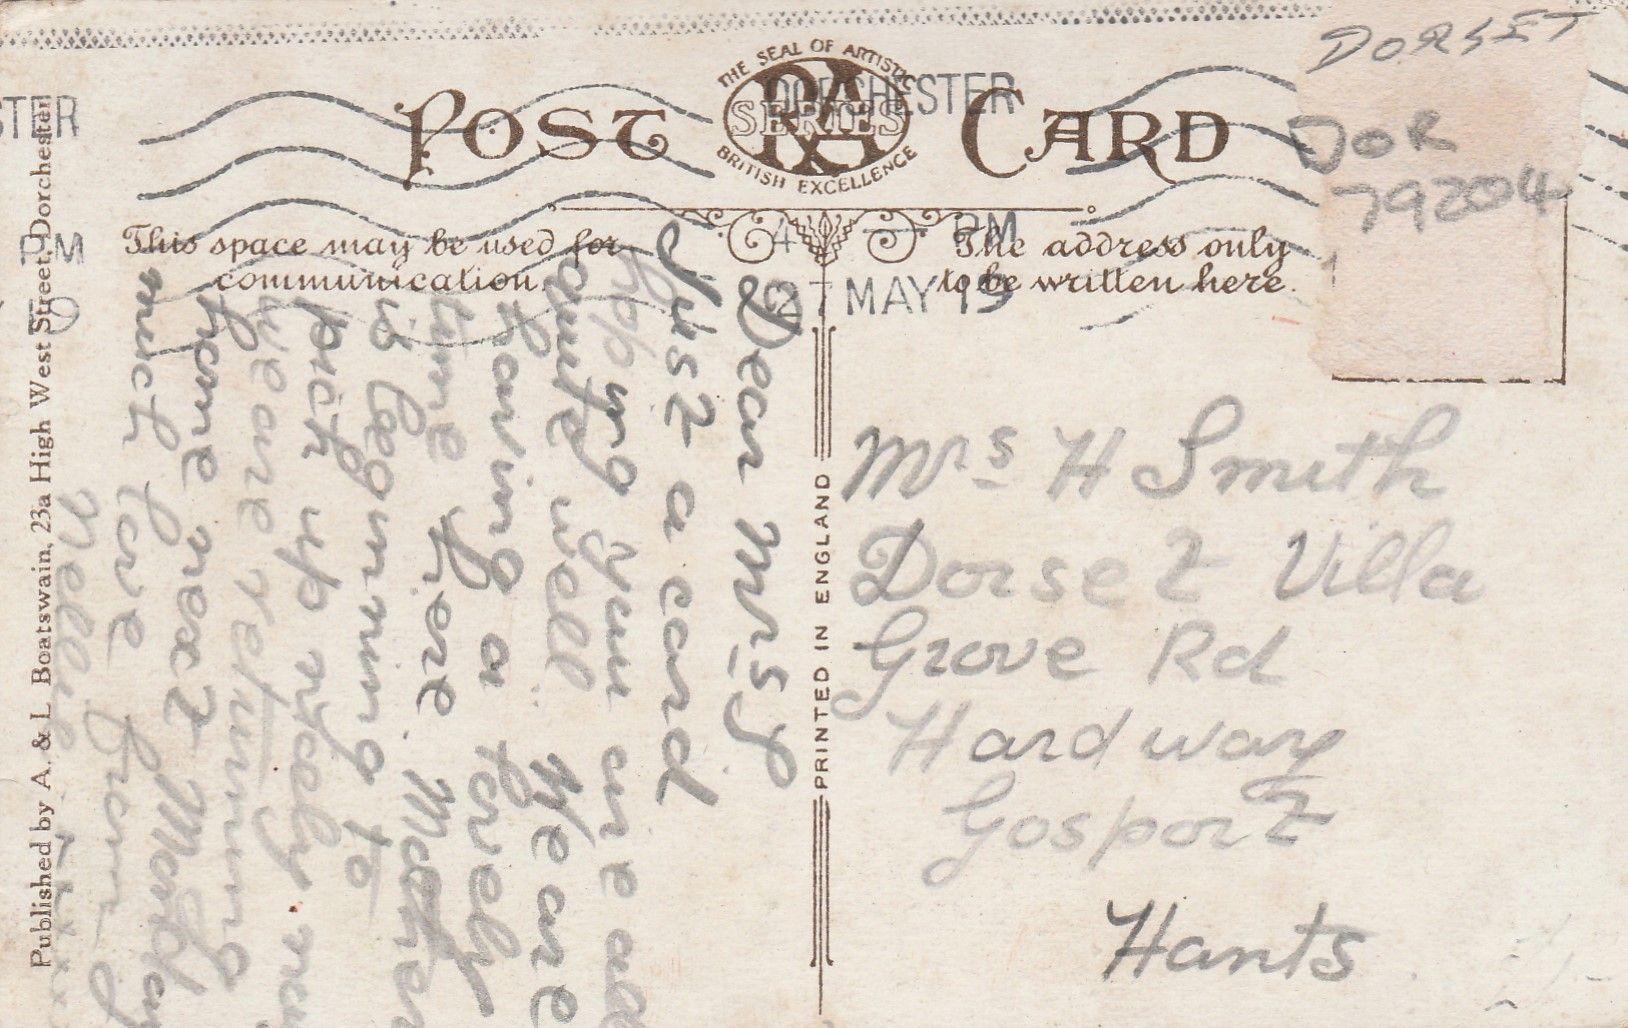 DORSET
DOR
79204
THE SEAL OF ARTISTIC
RA
SERIES
BRITISH EXCELLENCE
POST CARD
DORCHESTER
4 PM
27 MAY 19
STER
PM
This space may be used for
communication.
The address only
to be written here.
Dear Mrs S
Just a card
hoping you are all
quite well. We are
having a lovely
time here. Mother
is beginning to
pick up nicely now
we are returning
home next Monday
much love from
Nellie
xxxx
Mrs H Smith
Dorset Villa
Grove Rd
Hardway
Gosport
Hants
PRINTED IN ENGLAND
Published by A. & L. Boatswain, 23a High West Street, Dorchester